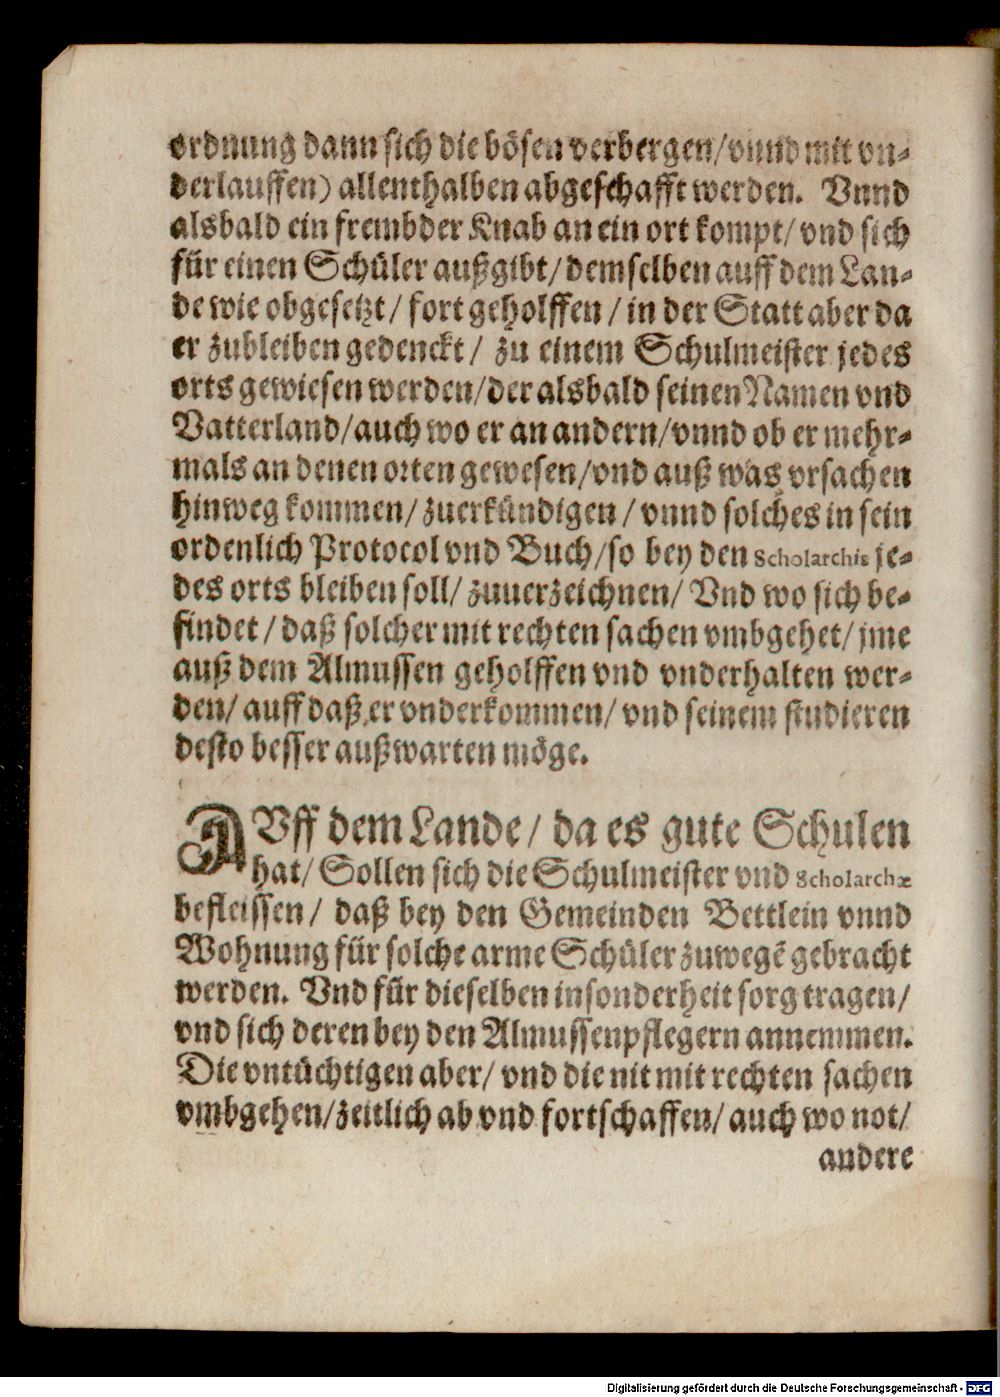 ordnung dann sich die bösen verbergen/vnnd mit vn-
derlauffen) allenthalben abgeschafft werden. Vnnd
alsbald ein frembder Knab an ein ort kompt/ vnd sich
für einen Schüler außgibt/ demselben auff dem Lan-
de wie obgesetzt/ fort geholffen / in der Statt aber da
er zubleiben gedenckt/ zu einem Schulmeister jedes
orts gewiesen werden/der alsbald seinen Namen vnd
Vatterland/auch wo er an andern/vnnd ob er mehr-
mals an denen orten gewesen/vnd auß was vrsachen
hinweg kommen/ zuerkündigen / vnnd solches in sein
ordenlich Protocol vnd Buch/so bey den Scholarchis je-
des orts bleiben soll/ zuuerzeichnen/ Vnd wo sich be-
findet / daß solcher mit rechten sachen vmbgehet/ jme
auß dem Almussen geholffen vnd vnderhalten wer-
den/ auff daß er vnderkommen/ vnd seinem studieren
desto besser außwarten möge.
AVff dem Lande/ da es gute Schulen
hat/ Sollen sich die Schulmeister vnd Scholarchæ
befleissen/ daß bey den Gemeinden Bettlein vnnd
Wohnung für solche arme Schüler zuwegẽ gebracht
werden. Vnd für dieselben insonderheit sorg tragen/
vnd sich deren bey den Almussenpflegern annemmen.
Die vntüchtigen aber/ vnd die nit mit rechten sachen
vmbgehen/zeitlich ab vnd fortschaffen/ auch wo not/
andere
Digitalisierung gefördert durch die Deutsche Forschungsgemeinschaft - DFG